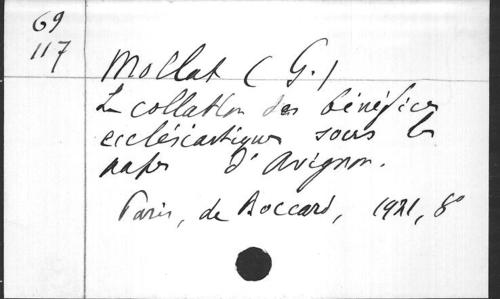 69
117
Mollat (G.)
La collation des bénéfices
ecclésiastiques sous les
papes d'Avignon.
Paris, de Boccard, 1921, 8°